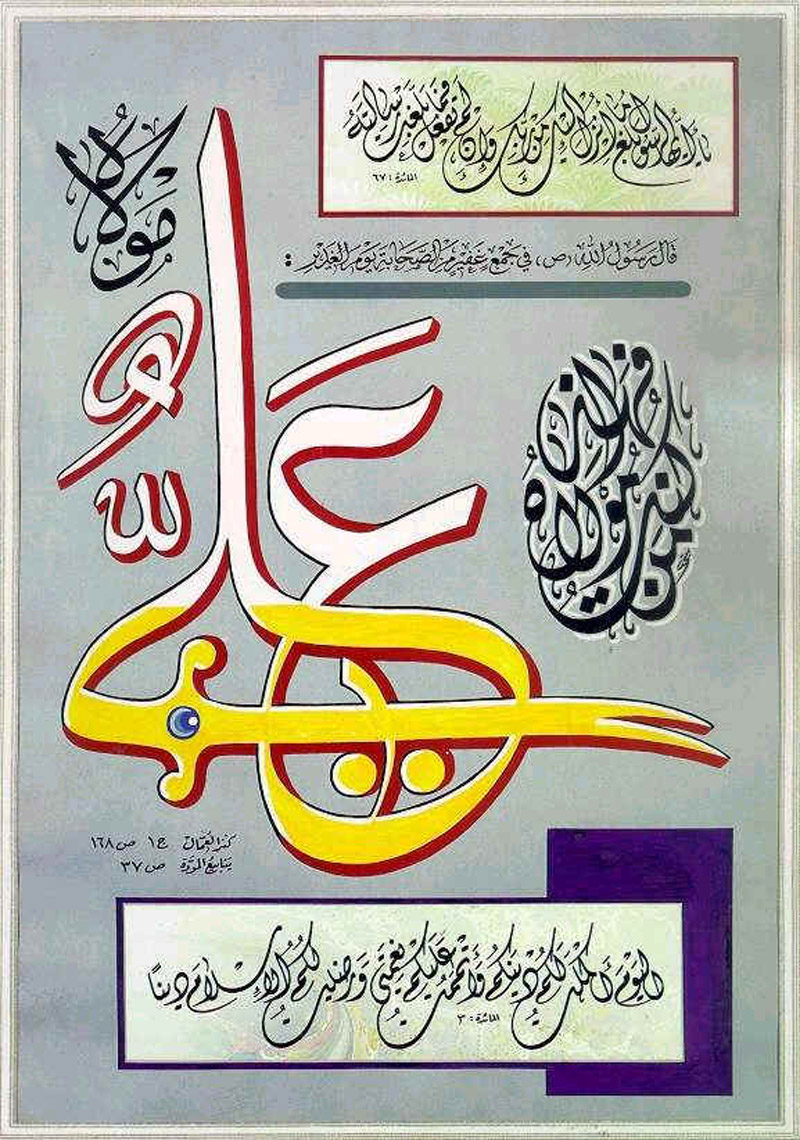 يا أيها الرسول بلغ ما أنزل إليك من ربك وإن لم تفعل فما بلغت رسالته
المائدة : ٦٧
قال رسول الله (ص) في جمع غفير من الصحابة يوم الغدير :
من كنت مولاه فهذا
علي
مولاه
كنز العمال ج١ ص١٦٨
ينابيع المودة ص٣٧
اليوم أكملت لكم دينكم وأتممت عليكم نعمتي ورضيت لكم الإسلام دينا
المائدة : ٣